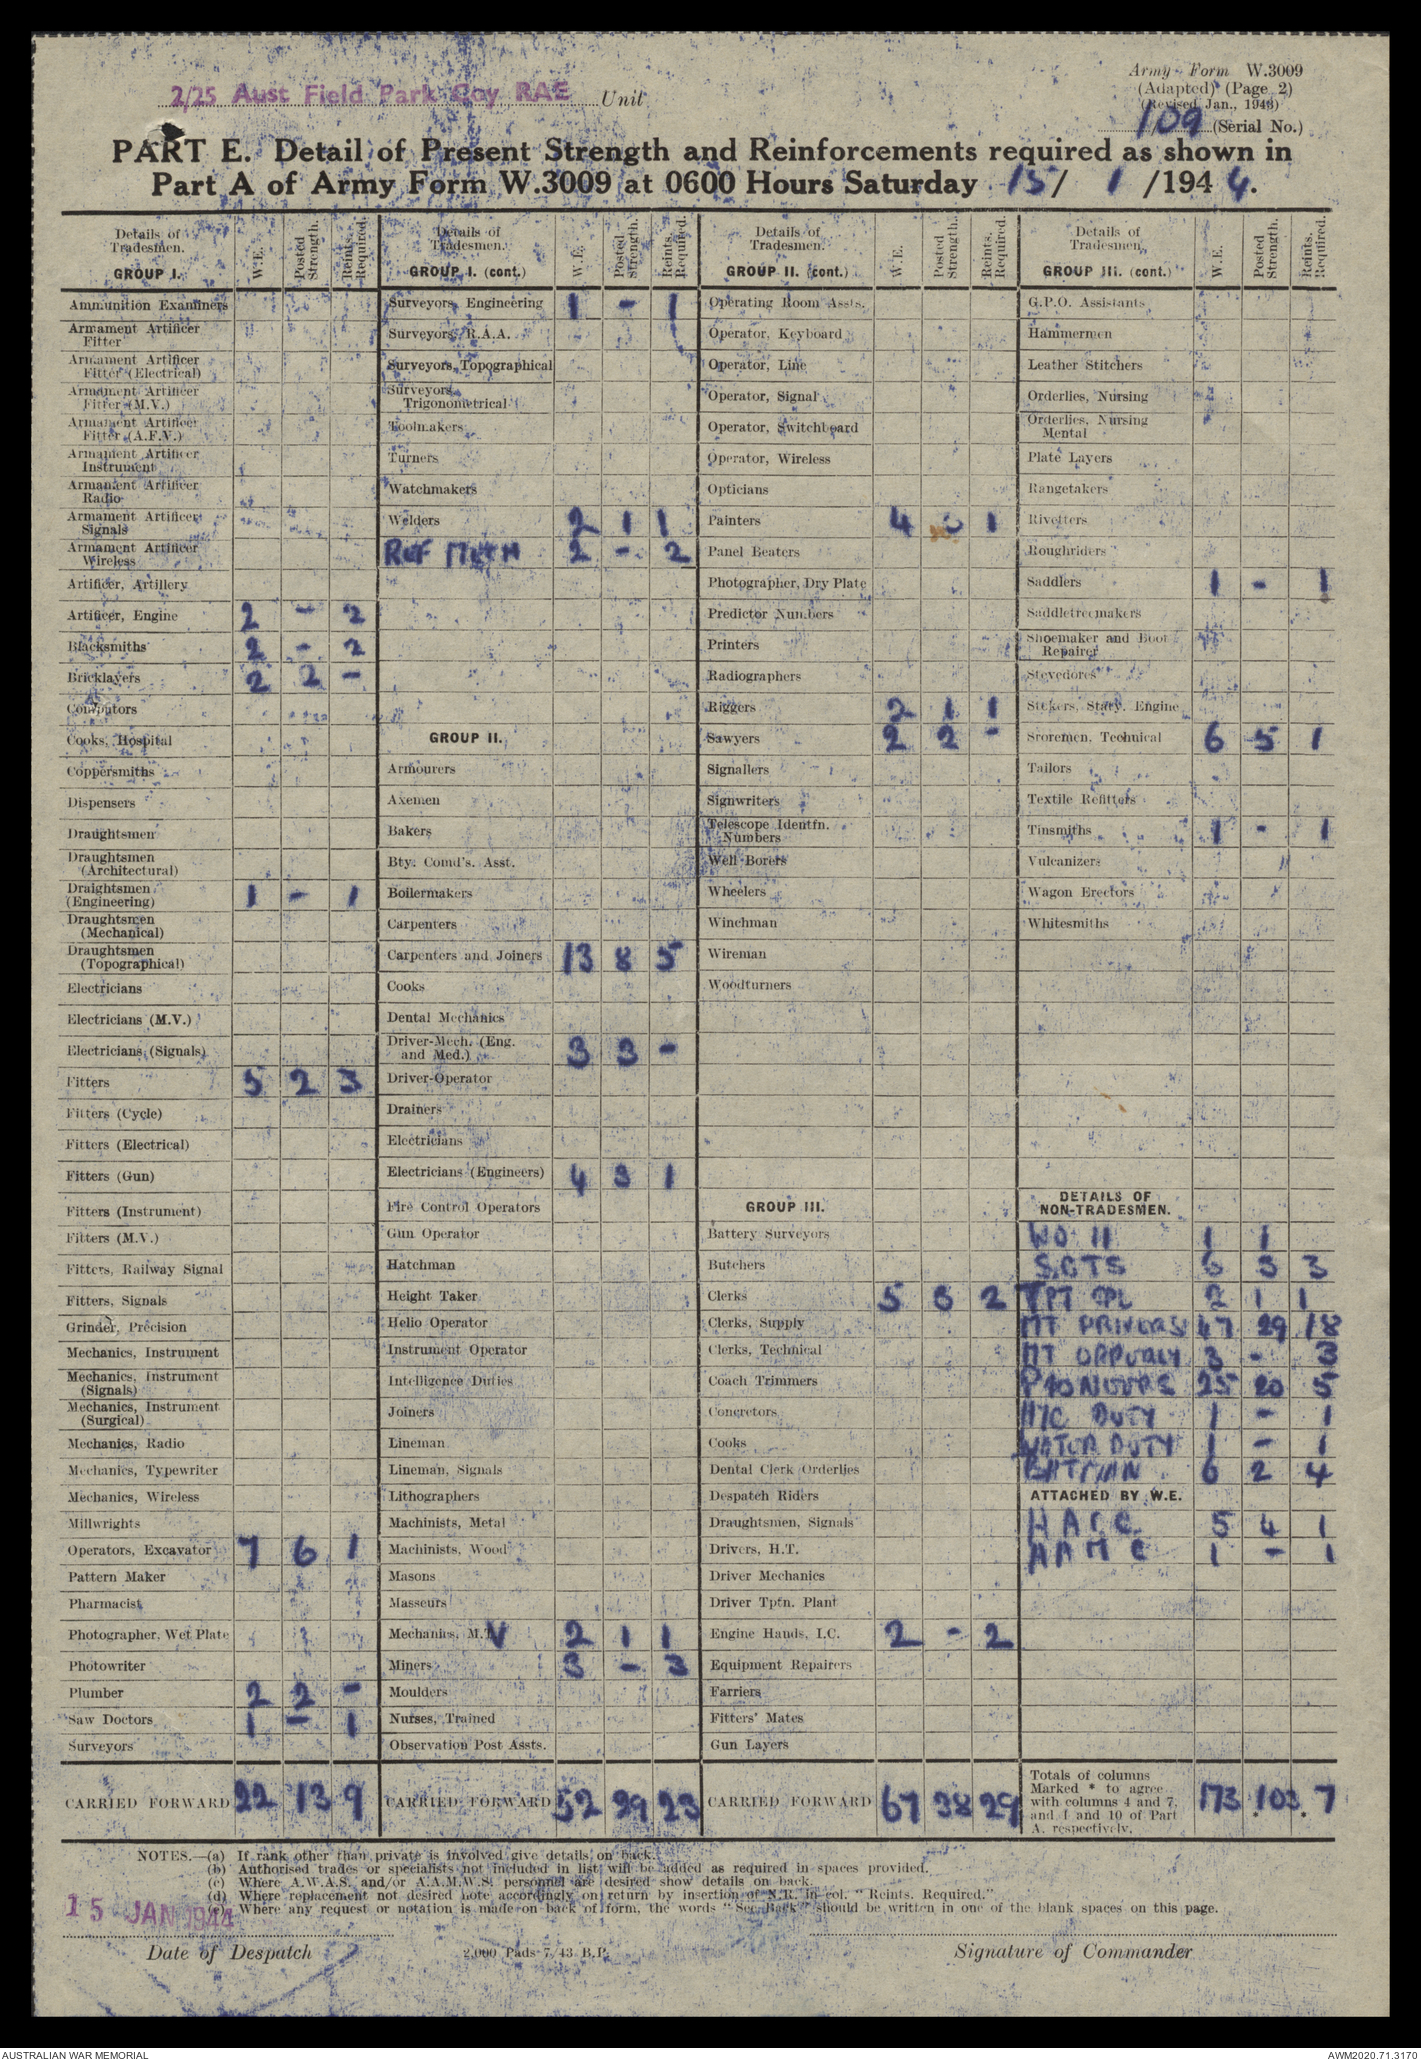 2/25 Aust Field Park Coy RAE Unit
Army Form W.3009
(Adapted) (Page 2)
(Revised Jan., 1943)
109 (Serial No.)
PART E. Detail of Present Strength and Reinforcements required as shown in
Part A of Army Form W.3009 at 0600 Hours Saturday 15/ 1 /1944.
Details of Tradesmen. GROUP I. W.E. Posted Strength. Reints. Required.
Ammunition Examiners
Armament Artificer Fitter
Armament Artificer Fitter (Electrical)
Armament Artificer Fitter (M.V.)
Armament Artificer Fitter (A.F.V.)
Armament Artificer Instrument
Armament Artificer Radio
Armament Artificer Signals
Armament Artificer Wireless
Artificer, Artillery
Artificer, Engine 2 - 2
Blacksmiths 2 - 2
Bricklayers 2 2 -
Computors
Cooks, Hospital
Coppersmiths
Dispensers
Draughtsmen
Draughtsmen (Architectural)
Draightsmen (Engineering) 1 - 1
Draughtsmen (Mechanical)
Draughtsmen (Topographical)
Electricians
Electricians (M.V.)
Electricians (Signals)
Fitters 5 2 3
Fitters (Cycle)
Fitters (Electrical)
Fitters (Gun)
Fitters (Instrument)
Fitters (M.V.)
Fitters, Railway Signal
Fitters, Signals
Grinder, Precision
Mechanics, Instrument
Mechanics, Instrument (Signals)
Mechanics, Instrument (Surgical)
Mechanics, Radio
Mechanics, Typewriter
Mechanics, Wireless
Millwrights
Operators, Excavator 7 6 1
Pattern Maker
Pharmacist
Photographer, Wet Plate
Photowriter
Plumber 2 2 -
Saw Doctors 1 - 1
Surveyors
CARRIED FORWARD 22 13 9
Details of Tradesmen. GROUP I. (cont.) W.E. Posted Strength. Reints. Required.
Surveyors, Engineering 1 - 1
Surveyors, R.A.A.
Surveyors, Topographical
Surveyors, Trigonometrical
Toolmakers
Turners
Watchmakers
Welders 2 1 1
REF MECH 2 - 2
GROUP II.
Armourers
Axemen
Bakers
Bty. Comd's. Asst.
Boilermakers
Carpenters
Carpenters and Joiners 13 8 5
Cooks
Dental Mechanics
Driver-Mech. (Eng. and Med.) 3 3 -
Driver-Operator
Drainers
Electricians
Electricians (Engineers) 4 3 1
Fire Control Operators
Gun Operator
Hatchman
Height Taker
Helio Operator
Instrument Operator
Intelligence Duties
Joiners
Lineman
Lineman, Signals
Lithographers
Machinists, Metal
Machinists, Wood
Masons
Masseurs
Mechanics, M.V 2 1 1
Miners 3 - 3
Moulders
Nurses, Trained
Observation Post Assts.
CARRIED FORWARD 52 29 23
Details of Tradesmen. GROUP II. (cont.) W.E. Posted Strength. Reints. Required.
Operating Room Assts.
Operator, Keyboard
Operator, Line
Operator, Signal
Operator, Switchboard
Operator, Wireless
Opticians
Painters 4 1
Panel Beaters
Photographer, Dry Plate
Predictor Numbers
Printers
Radiographers
Riggers 2 1 1
Sawyers 2 2 -
Signallers
Signwriters
Telescope Identfn. Numbers
Well Borers
Wheelers
Winchman
Wireman
Woodturners
GROUP III.
Battery Surveyors
Butchers
Clerks 5 3 2
Clerks, Supply
Clerks, Technical
Coach Trimmers
Concretors
Cooks
Dental Clerk Orderlies
Despatch Riders
Draughtsmen, Signals
Drivers, H.T.
Driver Mechanics
Driver Tptn. Plant
Engine Hands, I.C. 2 - 2
Equipment Repairers
Farriers
Fitters' Mates
Gun Layers
CARRIED FORWARD 67 38 29
Details of Tradesmen. GROUP III. (cont.) W.E. Posted Strength. Reints. Required.
G.P.O. Assistants
Hammermen
Leather Stitchers
Orderlies, Nursing
Orderlies, Nursing Mental
Plate Layers
Rangetakers
Rivetters
Roughriders
Saddlers 1 - 1
Saddletreemakers
Shoemaker and Boot Repairer
Stevedores
Stokers, Staty. Engine
Storemen, Technical 6 5 1
Tailors
Textile Refitters
Tinsmiths 1 - 1
Vulcanizers
Wagon Erectors
Whitesmiths
DETAILS OF NON-TRADESMEN.
WO II 1 1
SGTS 6 3 3
TPT CPL 2 1 1
MT DRIVERS 47 29 18
MT ORDERLY 3 - 3
PIONEERS 25 20 5
M/C DUTY 1 - 1
WATER DUTY 1 - 1
BATMAN 6 2 4
ATTACHED BY W.E.
AACC 5 4 1
AAMC 1 - 1
Totals of columns Marked * to agree with columns 4 and 7, and 4 and 10 of Part A, respectively. 173 103 7
NOTES.—(a) If rank other than private is involved give details on back.
(b) Authorised trades or specialists not included in list will be added as required in spaces provided.
(c) Where A.W.A.S. and/or A.A.M.W.S. personnel are desired show details on back.
(d) Where replacement not desired note accordingly on return by insertion of N.R. in col. "Reints. Required."
(e) Where any request or notation is made on back of form, the words "See Back" should be written in one of the blank spaces on this page.
15 JAN 1944
Date of Despatch
2,000 Pads 7/43 B.P.
Signature of Commander
AUSTRALIAN WAR MEMORIAL
AWM2020.71.3170